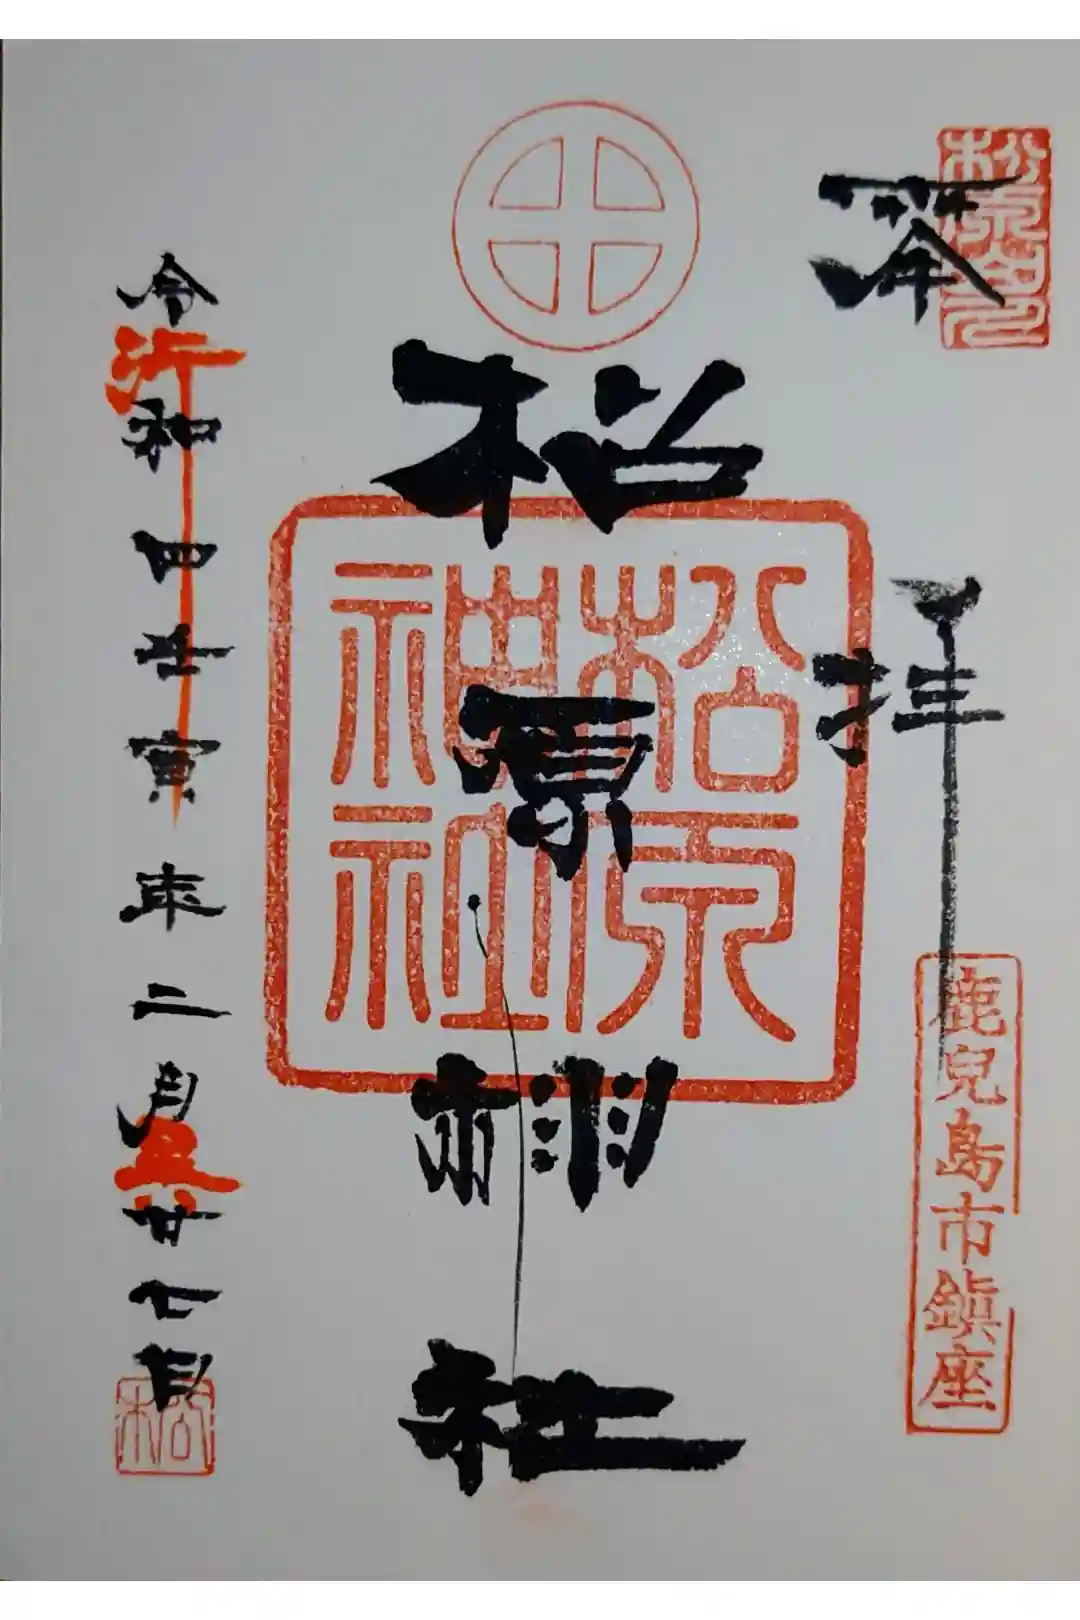 奉拝
鹿兒島市鎮座
松原神社
松原
神社
令和四壬寅年二月廿七日
松